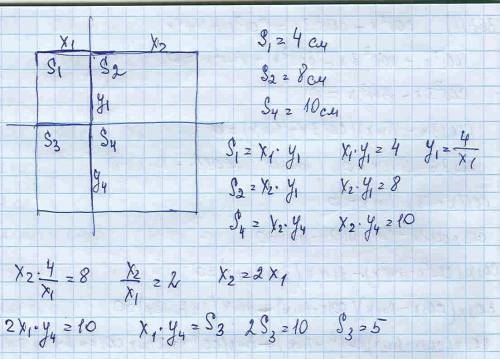 x₁ x₂
S₁ S₂
y₁
S₃ S₄
y₄
S₁ = 4 см
S₂ = 8 см
S₄ = 10 см
S₁ = x₁ · y₁ x₁ · y₁ = 4 y₁ = 4/x₁
S₂ = x₂ · y₁ x₂ · y₁ = 8
S₄ = x₂ · y₄ x₂ · y₄ = 10
x₂ · 4/x₁ = 8 x₂/x₁ = 2 x₂ = 2x₁
2x₁ · y₄ = 10 x₁ · y₄ = S₃ 2S₃ = 10 S₃ = 5